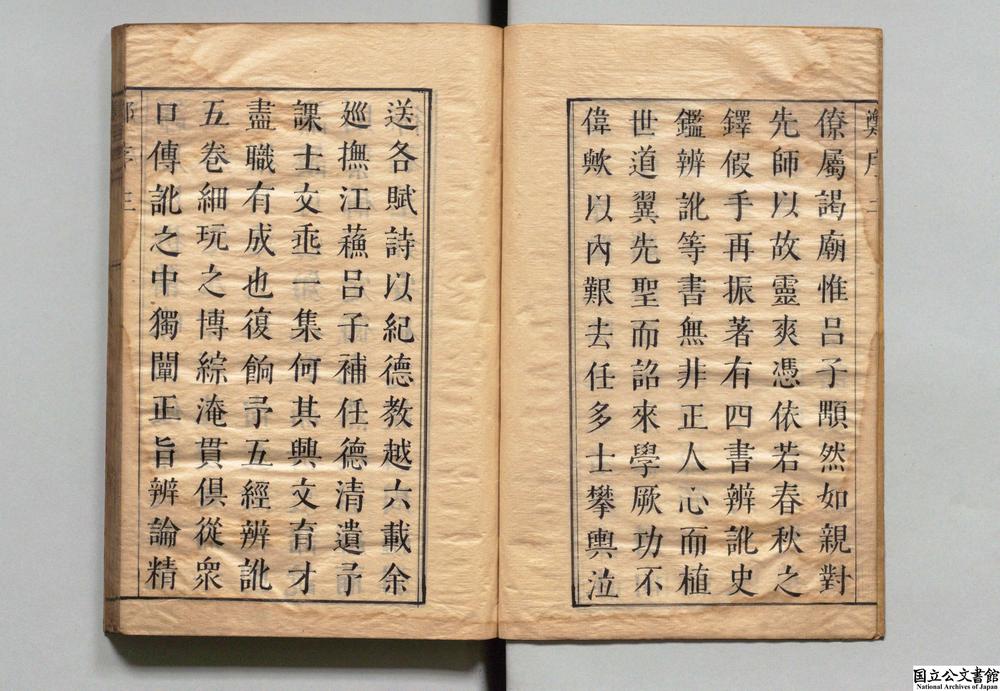 僚屬謁廟惟呂子顒然如親對
先師以故靈爽憑依若春秋之
鐸假手再振著有四書辨訛史
鑑辨訛等書無非正人心而植
世道翼先聖而詔來學厥功不
偉歟以內艱去任多士攀輿泣
送各賦詩以紀德教越六載余
廵撫江蘓呂子補任德清遺予
課士文乖一集何其興文育才
盡職有成也復餉予五經辨訛
五卷細玩之博綜淹貫俱從衆
口傳訛之中獨闡正旨辨論精
国立公文書館
National Archives of Japan